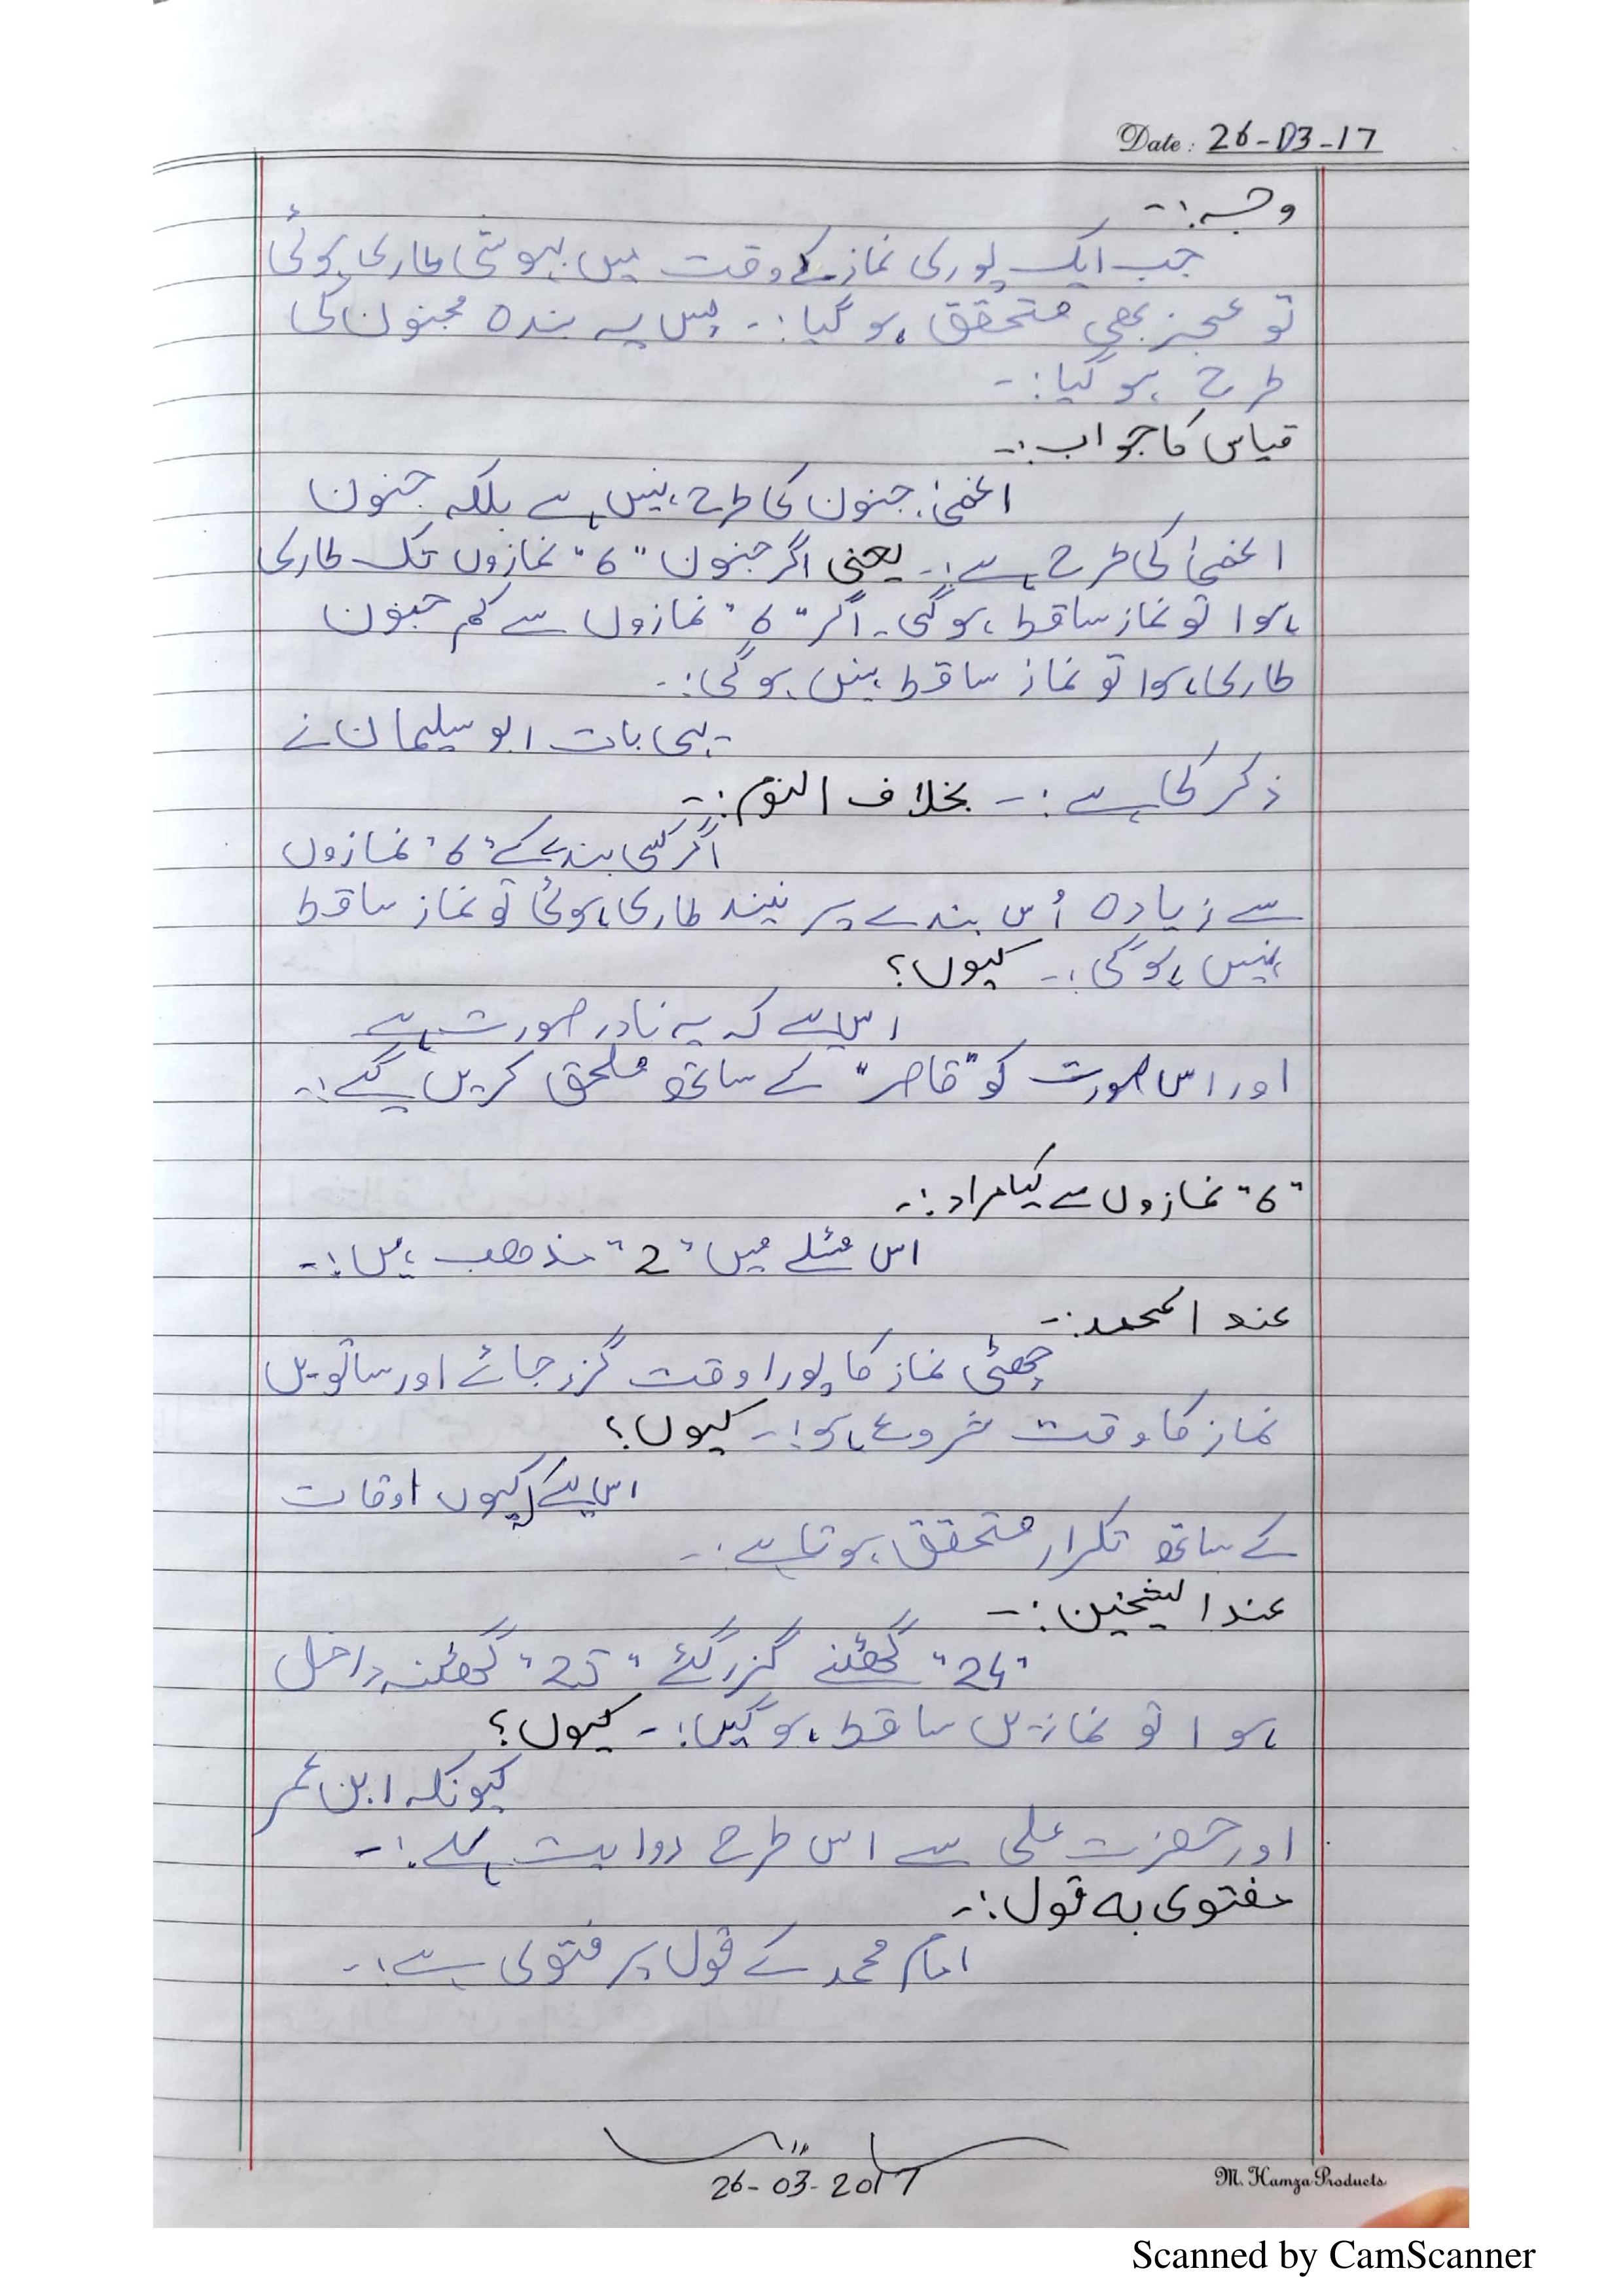 Date : 26-03-17
وجہ :-
جب ایک پوری نماز کے وقت میں بیہوشی طاری ہوئی
تو عجز بھی متحقق ہو گیا :- پس یہ بندہ مجنون کی
طرح ہو گیا :-
قیاس کا جواب :-
اغمیٰ جنون کی طرح نہیں ہے بلکہ جنون
اغمیٰ کی طرح ہے :- یعنی اگر جنون "6" نمازوں تک طاری
ہوا تو نماز ساقط ہو گی۔ اگر "6" نمازوں سے کم جنون
طاری ہوا تو نماز ساقط نہیں ہو گی :-
یہی بات ابو سلیمان نے
ذکر کی ہے :- بخلاف النوم :-
اگر کسی بندے کے "6" نمازوں
سے زیادہ اُس بندے پر نیند طاری ہوئی تو نماز ساقط
نہیں ہو گی :- کیوں؟
اس لیے کہ یہ نادر صورت ہے
اور اس صورت کو "قاصر" کے ساتھ ملحق کریں گے :-
"6" نمازوں سے کیا مراد :-
اس مسئلے میں "2" مذھب ہیں :-
عند المحمد :-
چھٹی نماز کا پورا وقت گزر جائے اور ساتویں
نماز کا وقت شروع ہو :- کیوں؟
اس لیے کیوں اوقات
کے ساتھ تکرار متحقق ہوتا ہے :-
عند الشیخین :-
"24" گھنٹے گزر گئے "25" گھنٹہ داخل
ہوا تو نمازیں ساقط ہو گیں :- کیوں؟
کیونکہ ابن عمر
اور حضرت علی سے اس طرح روایت ہے :-
مفتوی بہ قول :-
امام محمد کے قول پر فتوی ہے :-
26-03-2017
M. Hamza Products
Scanned by CamScanner